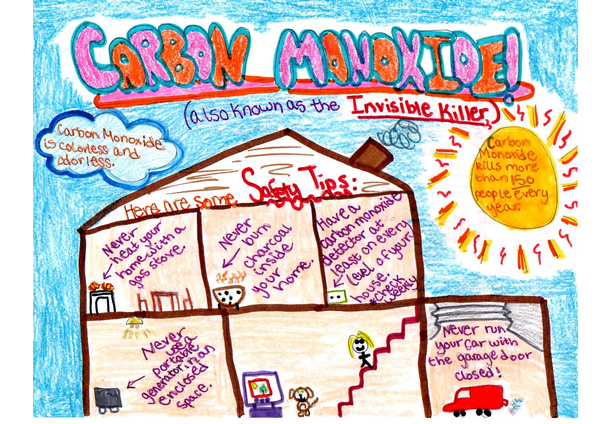 CARBON MONOXIDE!
(also known as the Invisible Killer)
Carbon Monoxide
is colorless and
odorless.
Carbon
Monoxide
kills more
than 150
people every
year.
Here are some Safety Tips:
Never
heat your
home with a
gas stove.
Never
burn
charcoal
inside
your
home.
Have a
carbon monoxide
detector at
least on every
level of your
house.
*check
Never
use a
portable
generator in an
enclosed
space.
Never run
your car with
the garage door
closed!